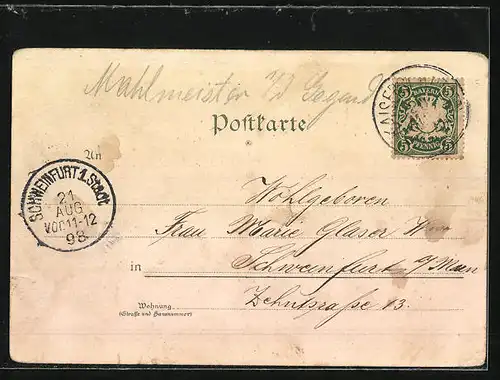 Mahlmeister i/d Gegend
BAYERN
5 5
PFENNIG
Postkarte
An
SCHWEINFURT 1. Stadt
21
AUG
VOR 11-12
98
Wohlgeboren
Frau Marie Glaser
in Schweinfurt a/Main
Zehntstraße 13.
Wohnung
(Straße und Hausnummer)